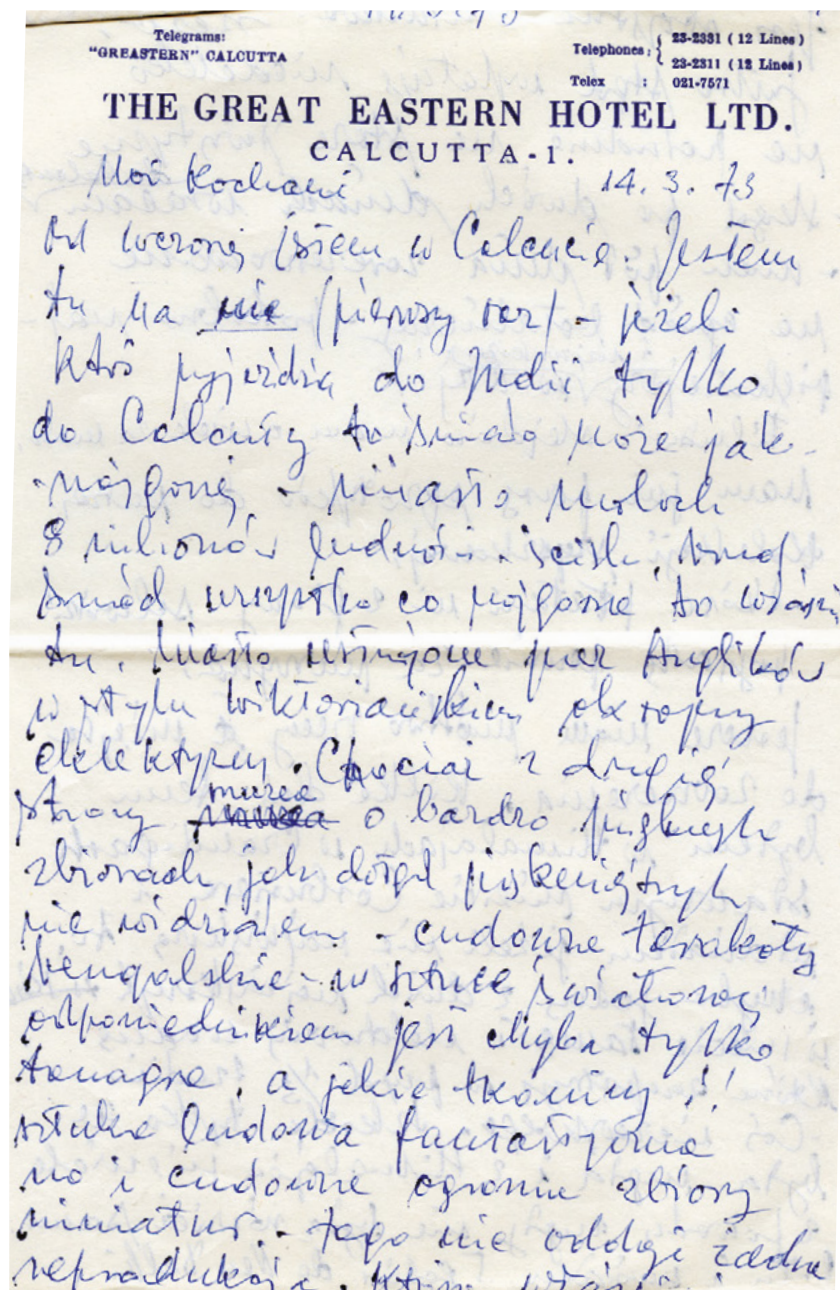 Telegrams:
"GREASTERN" CALCUTTA
Telephones: { 23-2331 (12 Lines)
23-2311 (12 Lines)
Telex : 021-7571
THE GREAT EASTERN HOTEL LTD.
CALCUTTA-1.
Moi Kochani 14.3.73
od wczoraj jstem w Calcucie. Jestem
tu na nie (pierwszy raz) - jeżeli
ktoś pyjeżdża do Indii tylko
do Calcuty to śmiało może jak-
-najgorzej - miasto moloch
8 milionów ludnośc. ścisk, brud
smród wszystko co najgorsze to właśni
tu. Miasto przez Anglików
w stylu wiktoriańskim okropny
elektyzm. Chociaż z drugiej
strony muzea o bardzo pięknych
zbiorach, jak dotąd piękniejszych
nie widziałem - cudowne terakoty
bengalskie - w sztuce światowej
odpowiednikiem jest chyba tylko
tanagra, a jakie tkaniny!!
sztuka ludowa fantastyczna
no i cudowne ogromne zbiory
miniatur - tego nie oddaje żadna
reprodukcja.